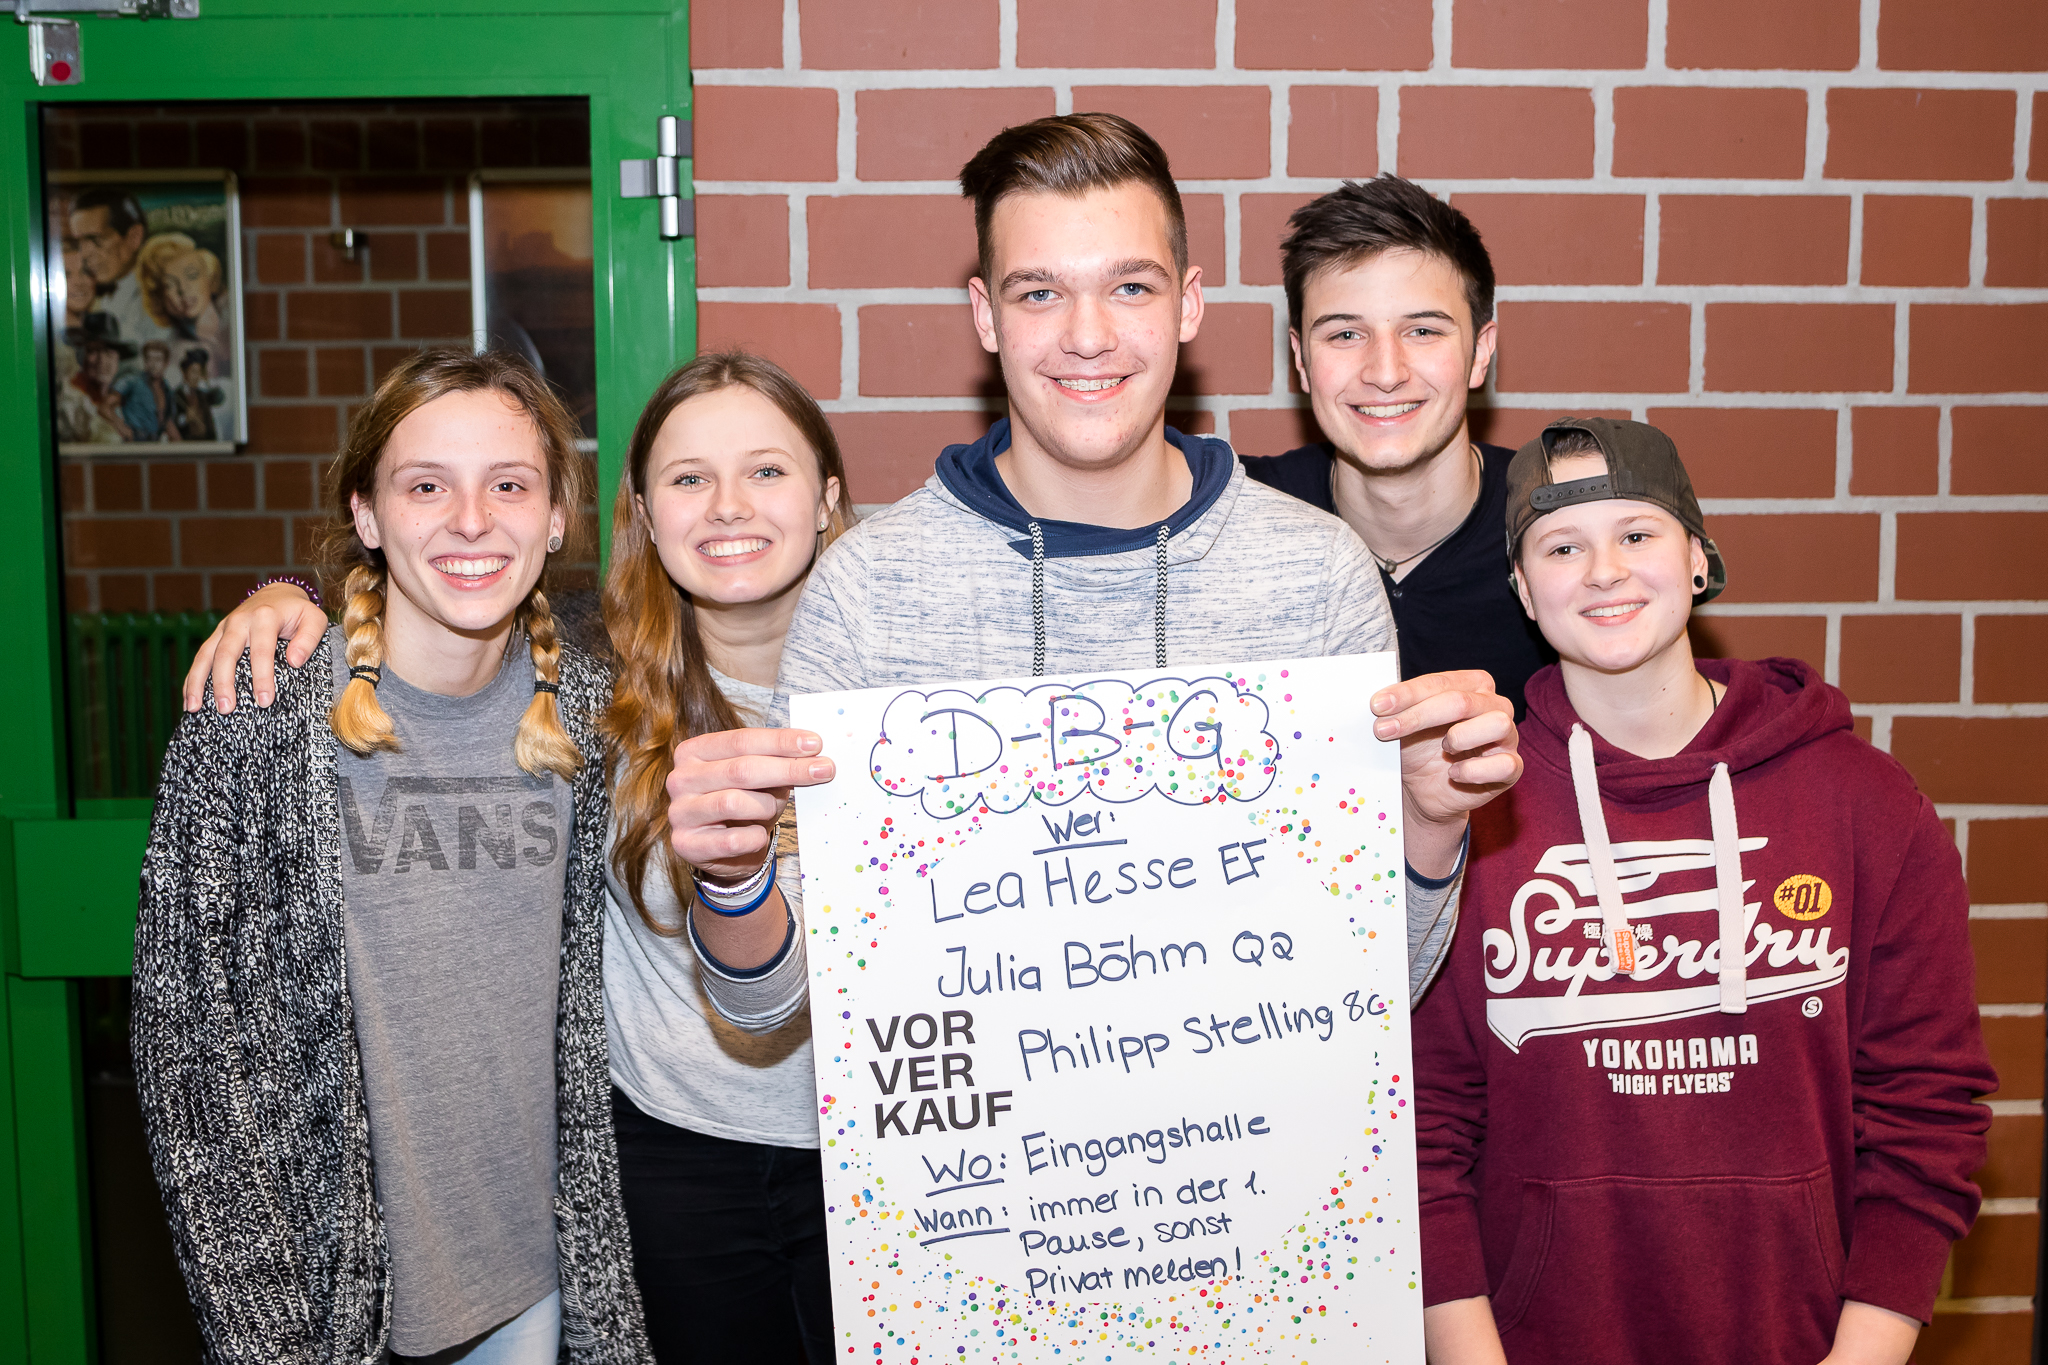 D-B-G
Wer:
Lea Hesse EF
Julia Böhm Q2
Philipp Stelling 8c
VOR
VER
KAUF
Wo: Eingangshalle
Wann: immer in der 1.
Pause, sonst
Privat melden!
VANS
#01
Superdry
YOKOHAMA
'HIGH FLYERS'